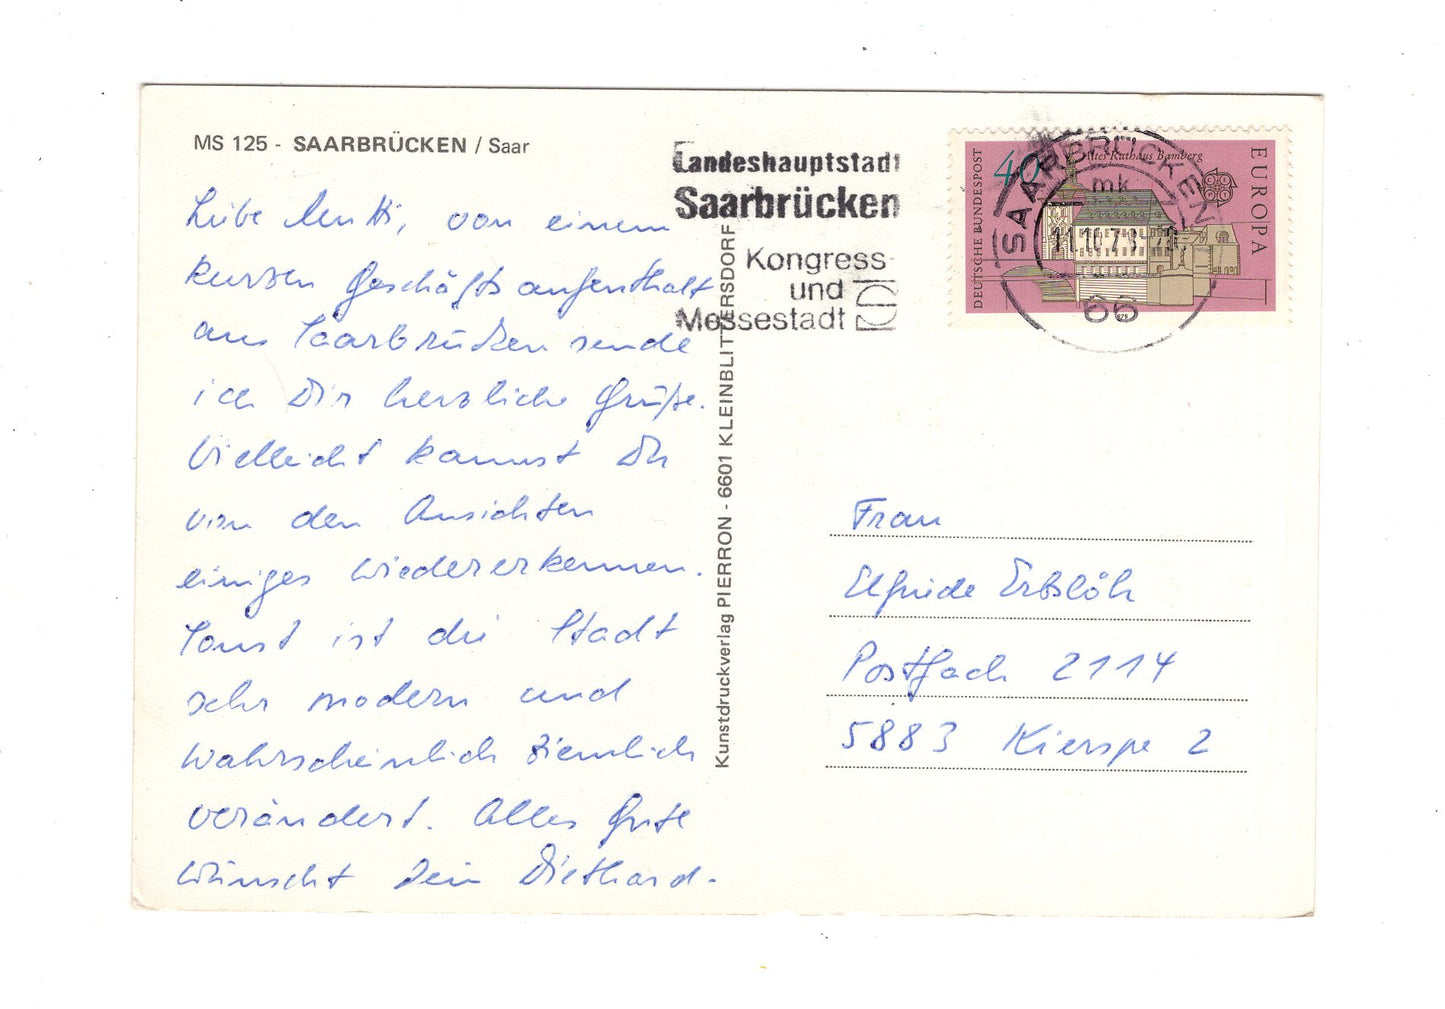 MS 125 - SAARBRÜCKEN / Saar
Liebe Mutti, von einem
kurzen Geschäftsaufenthalt
aus Saarbrücken sende
ich Dir herzliche Grüße.
Vielleicht kannst Du
von den Ansichten
einiges wiedererkennen.
Sonst ist die Stadt
sehr modern und
wahrscheinlich ziemlich
verändert. Alles Gute
wünscht Dein Diethard.
Kunstdruckverlag PIERRON - 6601 KLEINBLITTERSDORF
Landeshauptstadt
Saarbrücken
Kongress-
und
Messestadt
DEUTSCHE BUNDESPOST
40
Altes Rathaus Bamberg
EUROPA
SAARBRÜCKEN
mk
66
Frau
Elfriede Erbslöh
Postfach 2114
5883 Kierspe 2